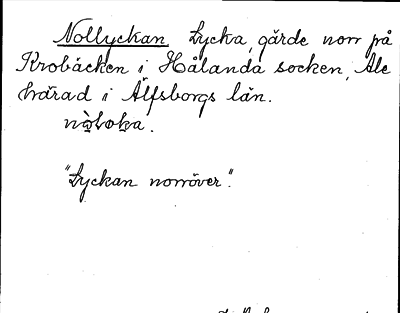 Nollyckan Lycka, gärde norr på
Krobäcken i Hålanda socken, Ale
härad i Älfsborgs län.
"Lyckan norröver".